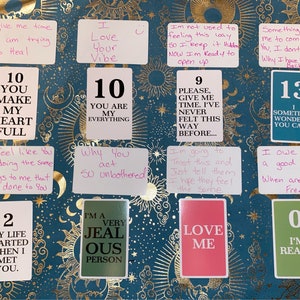 give me time
I am trying
to Heal
I
Love
Your
Vibe
I'm not used to
feeling this way
So I keep it Hidden
Now I'm Ready to
open up
Something
me to com
You,
don't
Why I
10
YOU
MAKE
MY
HEART
FULL
10
YOU ARE
MY
EVERYTHING
9
PLEASE,
GIVE ME
TIME. I'VE
NEVER
FELT THIS
WAY
BEFORE...
13
SOMETIM
WONDE
YOU C
feel like You
doing the Same
ngs to me that
done to You
Why You
act
so unbothered
and
tell them
I owe
a good
When
Free
2
MY LIFE
STARTED
WHEN I
MET
YOU.
I'M A
VERY
JEAL
OUS
PERSON
LOVE
ME
0
I'M
REA